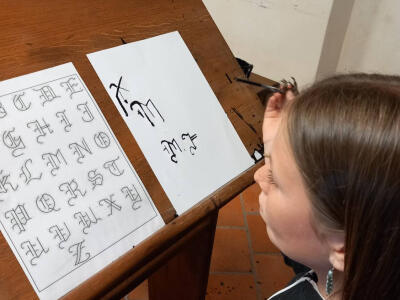 B C D E
G H I J
K L M N O
P Q R S T
U V W X Y
Z
M.F